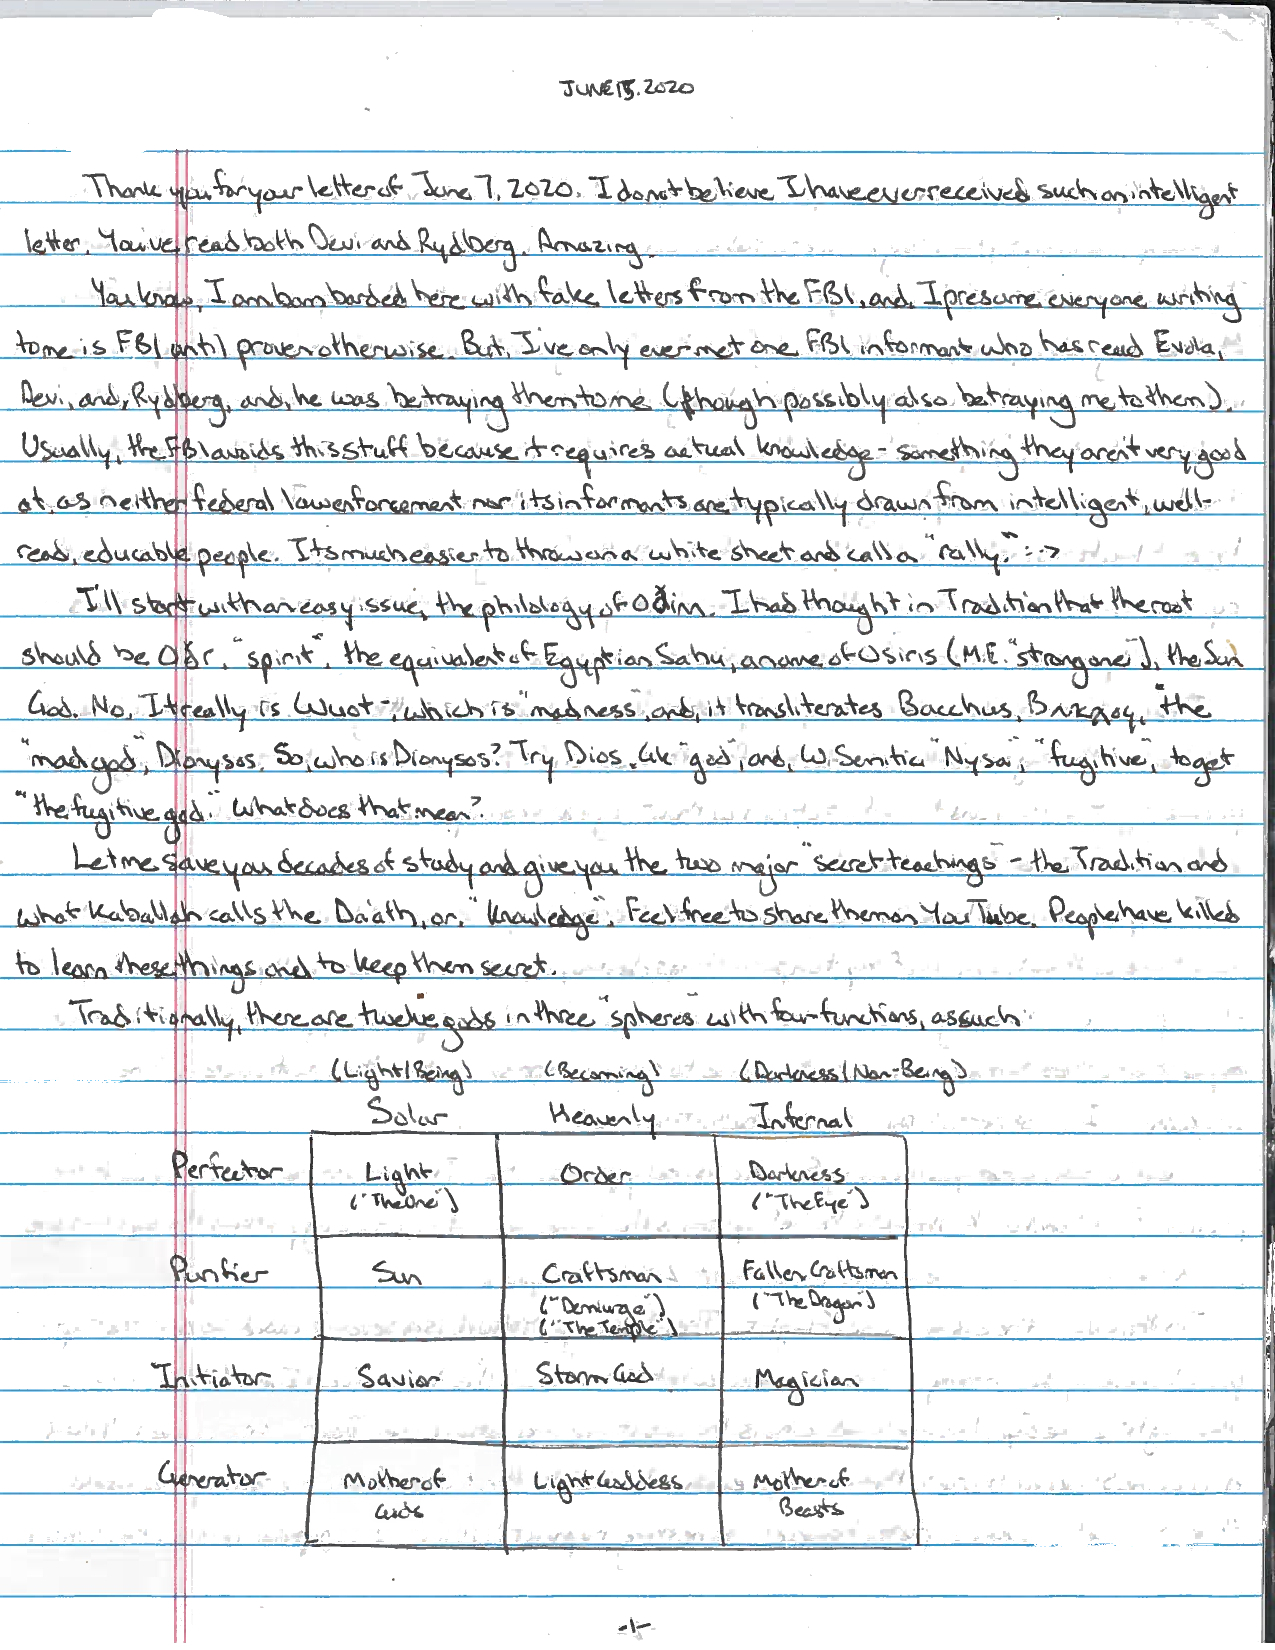 JUNE 15, 2020
Thank you for your letter of June 7, 2020. I do not believe I have ever received such an intelligent
letter. You've read both Devi and Rydberg. Amazing.
You know, I am bombarded here with fake letters from the FBI, and, I presume everyone writing
to me is FBI until proven otherwise. But, I've only ever met one FBI informant who has read Evola,
Devi, and, Rydberg, and, he was betraying them to me (though possibly also betraying me to them).
Usually, the FBI avoids this stuff because it requires actual knowledge - something they aren't very good
at, as neither federal law enforcement nor its informants are typically drawn from intelligent, well-
read, educable people. Its much easier to throw on a white sheet and call a "rally." :->
I'll start with an easy issue, the philology of Oðinn. I had thought in Tradition that the root
should be Oðr, "spirit", the equivalent of Egyptian Sahu, a name of Osiris (M.E. "strong one"), the Sun
God. No. It really is Wuot-, which is "madness", and, it transliterates Bacchus, "the
"mad god", Dionysos. So, who is Dionysos? Try Dios, Gk "god", and, W. Semitic "Nysa", "fugitive", to get
"the fugitive god." What does that mean?
Let me save you decades of study and give you the two major "secret teachings" - the Tradition and
what Kaballah calls the Da'ath, or, "Knowledge". Feel free to share them on YouTube. People have killed
to learn these things and to keep them secret.
Traditionally, there are twelve gods in three "spheres" with four functions, as such:
(Light/Being) (Becoming) (Darkness/Non-Being)
Solar Heavenly Infernal
Perfector Light Order Darkness
("The One") ("The Eye")
Purifier Sun Craftsman Fallen Craftsman
("Demiurge") ("The Dragon")
("The Temple")
Initiator Savior Storm God Magician
Generator Mother of Light Goddess Mother of
Gods Beasts
-1-